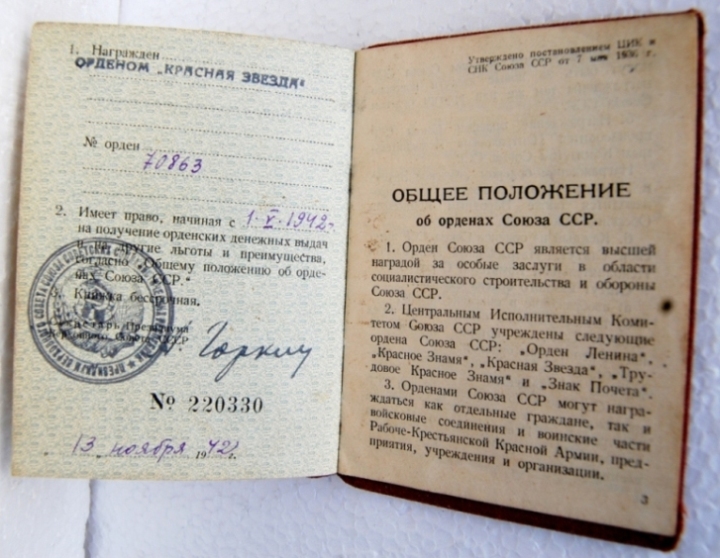 1. Награжден
ОРДЕНОМ „КРАСНАЯ ЗВЕЗДА"
№ орден
70863
2. Имеет право, начиная с 1·V·1942г.
на получение орденских денежных выдач
и на другие льготы и преимущества,
согласно „Общему положению об орде-
нах Союза ССР"
3. Книжка бессрочная.
Секретарь Президиума
Верховного Совета СССР
Горкин
№ 220330
13 ноября 1942г.
Утверждено постановлением ЦИК и
СНК Союза ССР от 7 мая 1936 г.
ОБЩЕЕ ПОЛОЖЕНИЕ
об орденах Союза ССР.
1. Орден Союза ССР является высшей
наградой за особые заслуги в области
социалистического строительства и обороны
Союза ССР.
2. Центральным Исполнительным Коми-
тетом Союза ССР учреждены следующие
ордена Союза ССР: „Орден Ленина",
„Красное Знамя", „Красная Звезда", „Тру-
довое Красное Знамя" и „Знак Почета".
3. Орденами Союза ССР могут награ-
ждаться как отдельные граждане, так и
войсковые соединения и воинские части
Рабоче-Крестьянской Красной Армии, пред-
приятия, учреждения и организации.
3